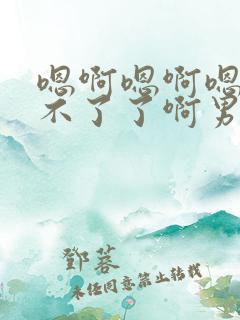 嗯啊嗯啊嗯
不了了啊男
鄧蓉
未经同意禁止转载